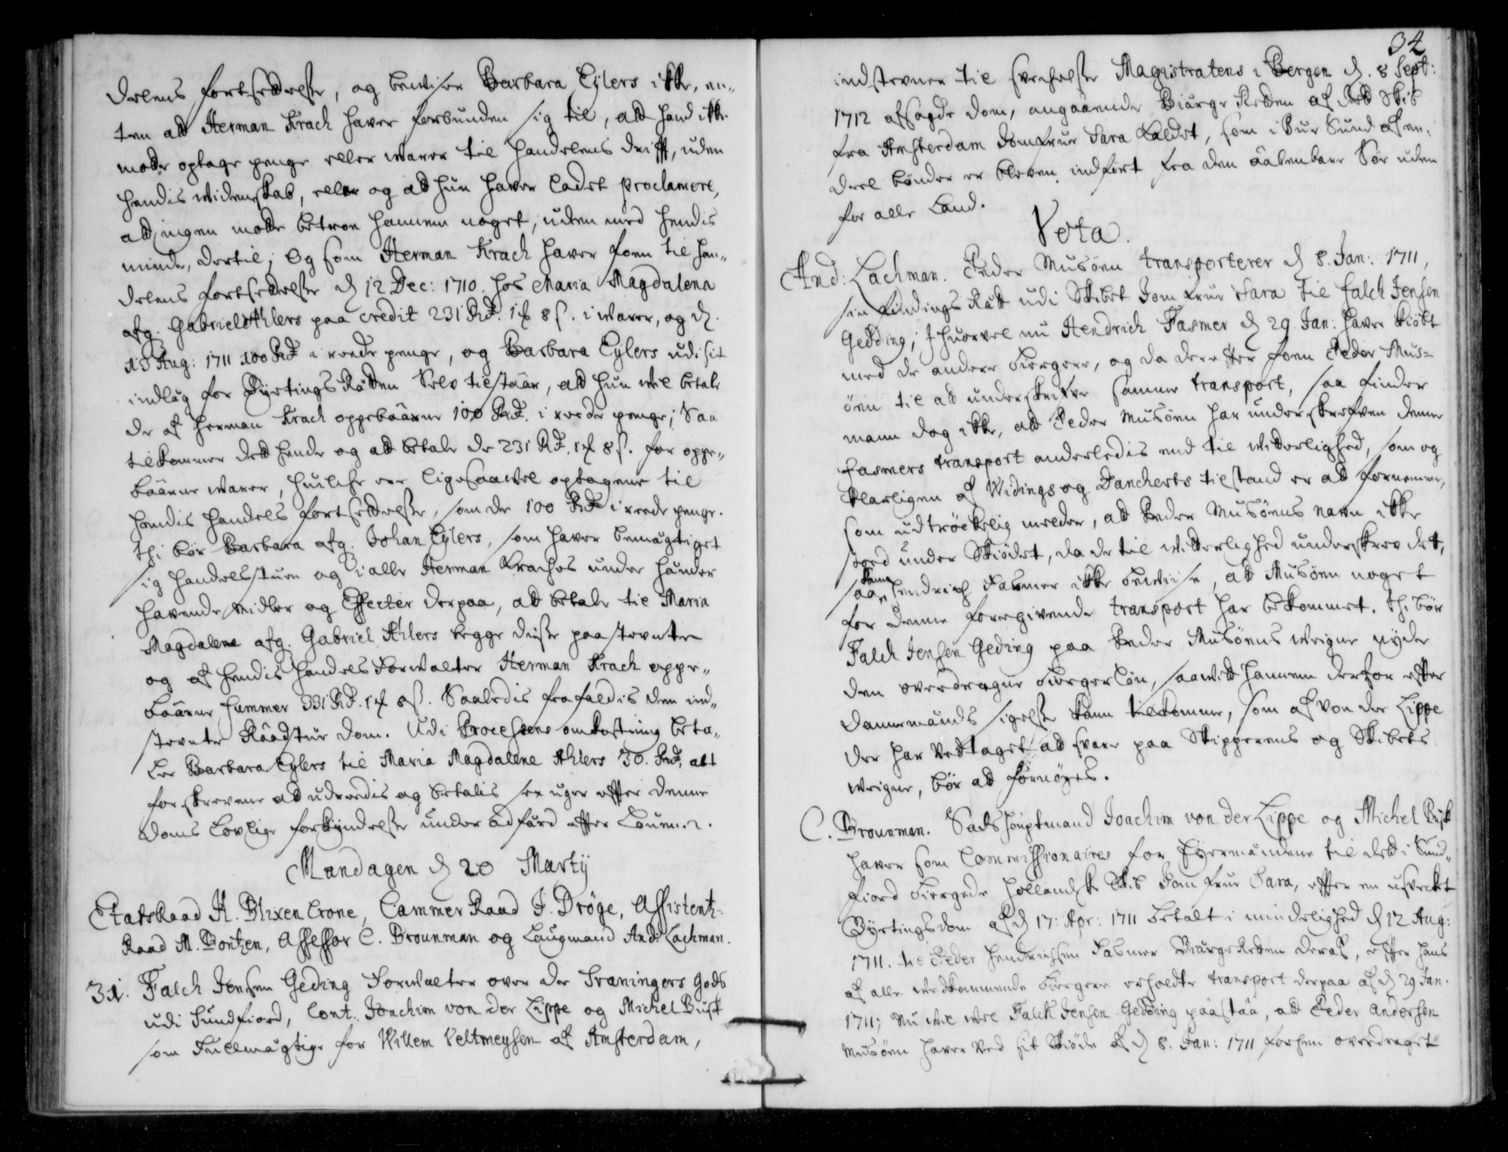 delens fortsettelse, og beviser Barbara Eylers icke, en-
ten at Herman Krach haver forbunden sig til, at hand icke
motte optage penge eller warer til handelens drifft, uden
hendis widenskab, eller og at hun haver ladet proclamere,
at ingen motte betroe hannem noget, uden med hendis
minde, dertil; Og som Herman Krach haver foen til han-
delens fortsettelse d. 12 Dec: 1710. hos Maria Magdalena
afg. Gabriel Ahlers paa credit 231 Rd. 1 # 8 s. i warer, og d.
13 Aug: 1711 100 Rd i reede penge, og Barbara Eylers udi sit
indlæg for Byetings Retten selv tilstaar, at hun wil betale
de af Herman Krach oppebaarne 100 Rd. i reede penge; Saa
tilkommer det hende og at betale de 231 Rd. 1 # 8 s. for oppe-
baarne warer, huilche ere ligesaavel optagene til
hendis handels fortsettelse, som de 100 Rd i reede penge.
Thi bør Barbara afg. Johan Eylers, som haver bemægtiget
sig handelsstuen og i alle Herman Kraches under hænder
havende midler og Effecter derpaa, at betale til Maria
Magdalena afg. Gabriel Ahlers begge disse paastevnte
og af hendis handels Forwalter Herman Krach oppe-
baarne Summer 331 Rd. 1 # 8 s. Saaledis frafaldis den ind-
stevnte Raadstue dom. Udi Processens omkostning beta-
ler Barbara Eylers til Maria Magdalene Ahlers 30. Rd, alt
forskrevene at udreedis og betalis sex uger effter denne
doms lovlige forkyndelse under adfærd effter Louen.
Mandagen d. 20 Martij
Etatsraad H. Blixencrone, Cammer Raad J. Dröge, Assistentz-
Raad M. Bontzen, Assessor C. Brounman og Laugmand And: Lachman.
31. Falch Jensen Geding Forwalter over de Traningers gods
udi Sundfiord, Cont. Joachim von der Lippe og Michel Busk
som Fuldmægtige for Willem Veltmeysen af Amsterdam,
34
indstevner til svechelse Magistratens i Bergen d. 8 Sept:
1712 afsagde dom, angaaende Biærge Retten af det Skib
fra Amsterdam Jomfrue Sara kaldet, som i Bue Sund af en
deel bønder er bleven indført fra den aabenbare Søe uden
for alle Land.
Vota.
And: Lachman. Peder Musöen transporterer d. 8. Jan: 1711,
sin findings Ræt udi Skibet Jomfrue Sara til Falch Jensen
Gedding; Ihuorvel nu Hendrich Fasmer d. 29. Jan: haver kiöbt
med de andre biergere, og da derefter foen Peder Mus-
öen til at underskrive samme transport, saa finder
mann dog icke, at Peder Musöen har underskrefven denne
Fasmers transport anderledis end til witterlighed, som og
klarligen af Widings og Dancherts tilstand er at fornemme,
som udtröckelig melder, at Peder Musöens navn icke
stoed under Skiödet, da de til witterlighed underskrev det,
saa kand Hendrich Fasmer icke bewise, at Musöen noget
for denne foregivende transport har bekommet. Thi bör
Falch Jensen Geding paa Peder Musöens weigne nyde
den overdragne biergerlön, saavit hannem derfor effter
dannemands sigelse kann tilkomme, som af von der Lippe
der har vedtaget at svare paa Skipperens og Skibets
weigne, bör at fornöyes.
C. Brounman. Stadshouptmand Joachim von der Lippe og Michel Busk
haver som Commissionairer for Eyermændene til dett i Sund-
fiord biergede hollandsk Skib Jomfrue Sara, effter en usveckt
Byetings dom af d. 17: Apr: 1711 betalt i mindelighed d. 12 Aug:
1711. til Peder Hendrichsen Fasmer Biærge Retten deraf, effter hans
af alle vedkommende biergere erholdte transport derpaa af d. 29 Jan.
1711; Nu wil wel Falch Jensen Gedding paastaa, at Peder Andersen
Musöen haver ved sit Skiöde af d. 8. Jan: 1711 forhen overdraget